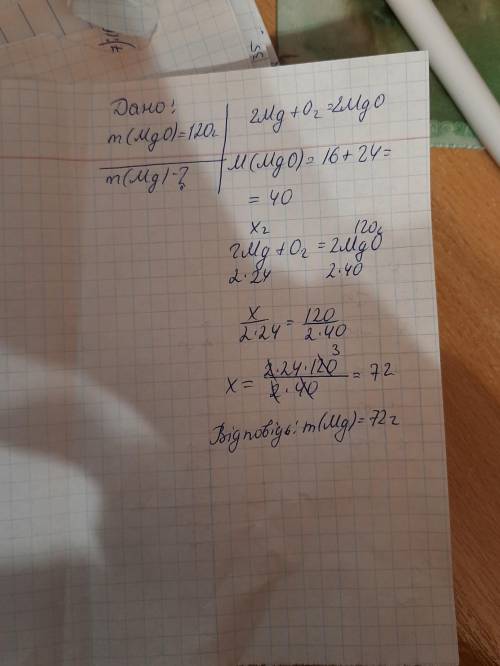 Дано:
m(MgO)=120г
m(Mg)-?
2Mg+O₂=2MgO
M(MgO)=16+24=
=40
xг 120г
2Mg+O₂=2MgO
2·24 2·40
x/2·24=120/2·40
x=2·24·120/2·40=72
3
Відповідь: m(Mg)=72г